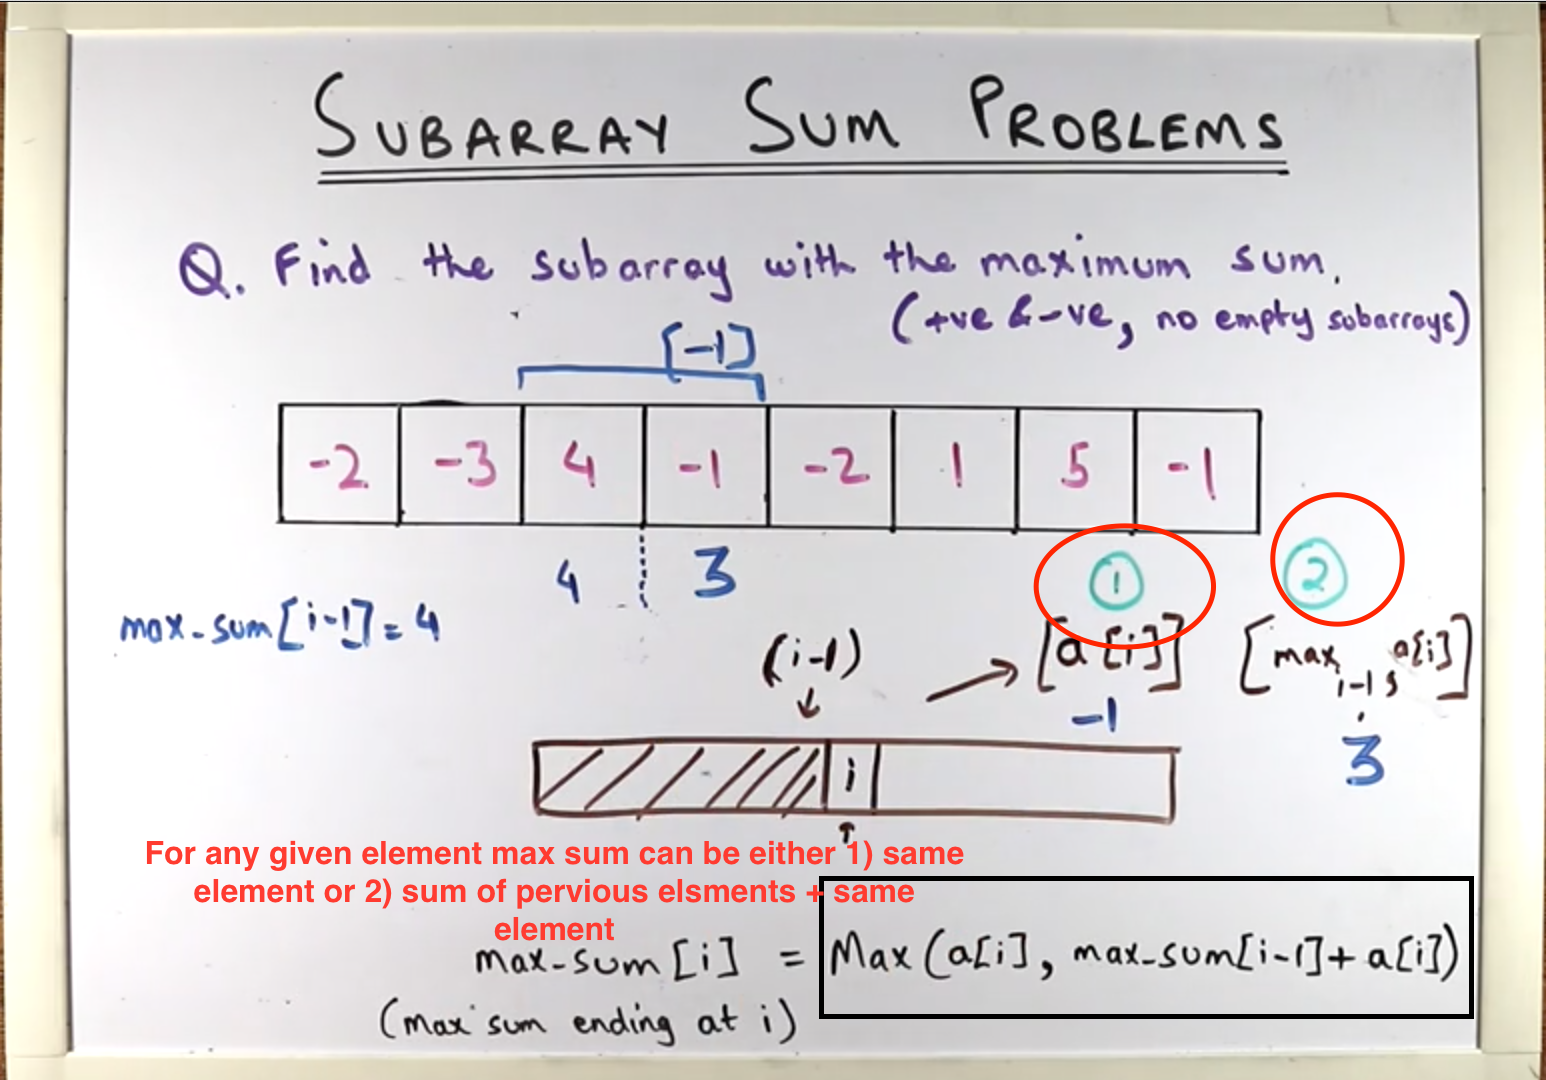 SUBARRAY SUM PROBLEMS
Q. Find the subarray with the maximum sum.
(+ve & -ve, no empty subarrays)
[-1]
-2 -3 4 -1 -2 1 5 -1
4 3 1 2
max-sum[i-1] = 4
(i-1) [a[i]] [max i-1, a[i]]
-1 3
i
For any given element max sum can be either 1) same
element or 2) sum of pervious elsments + same
element
max-sum[i] = Max(a[i], max-sum[i-1]+a[i])
(max sum ending at i)